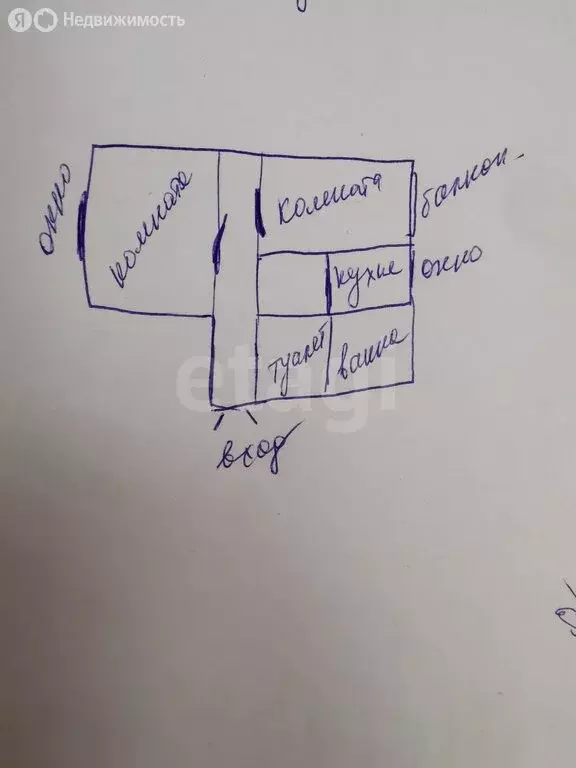 Я Недвижимость
окно
комната
комната
балкон
кухне
окно
туалет
ванна
etagi
вход